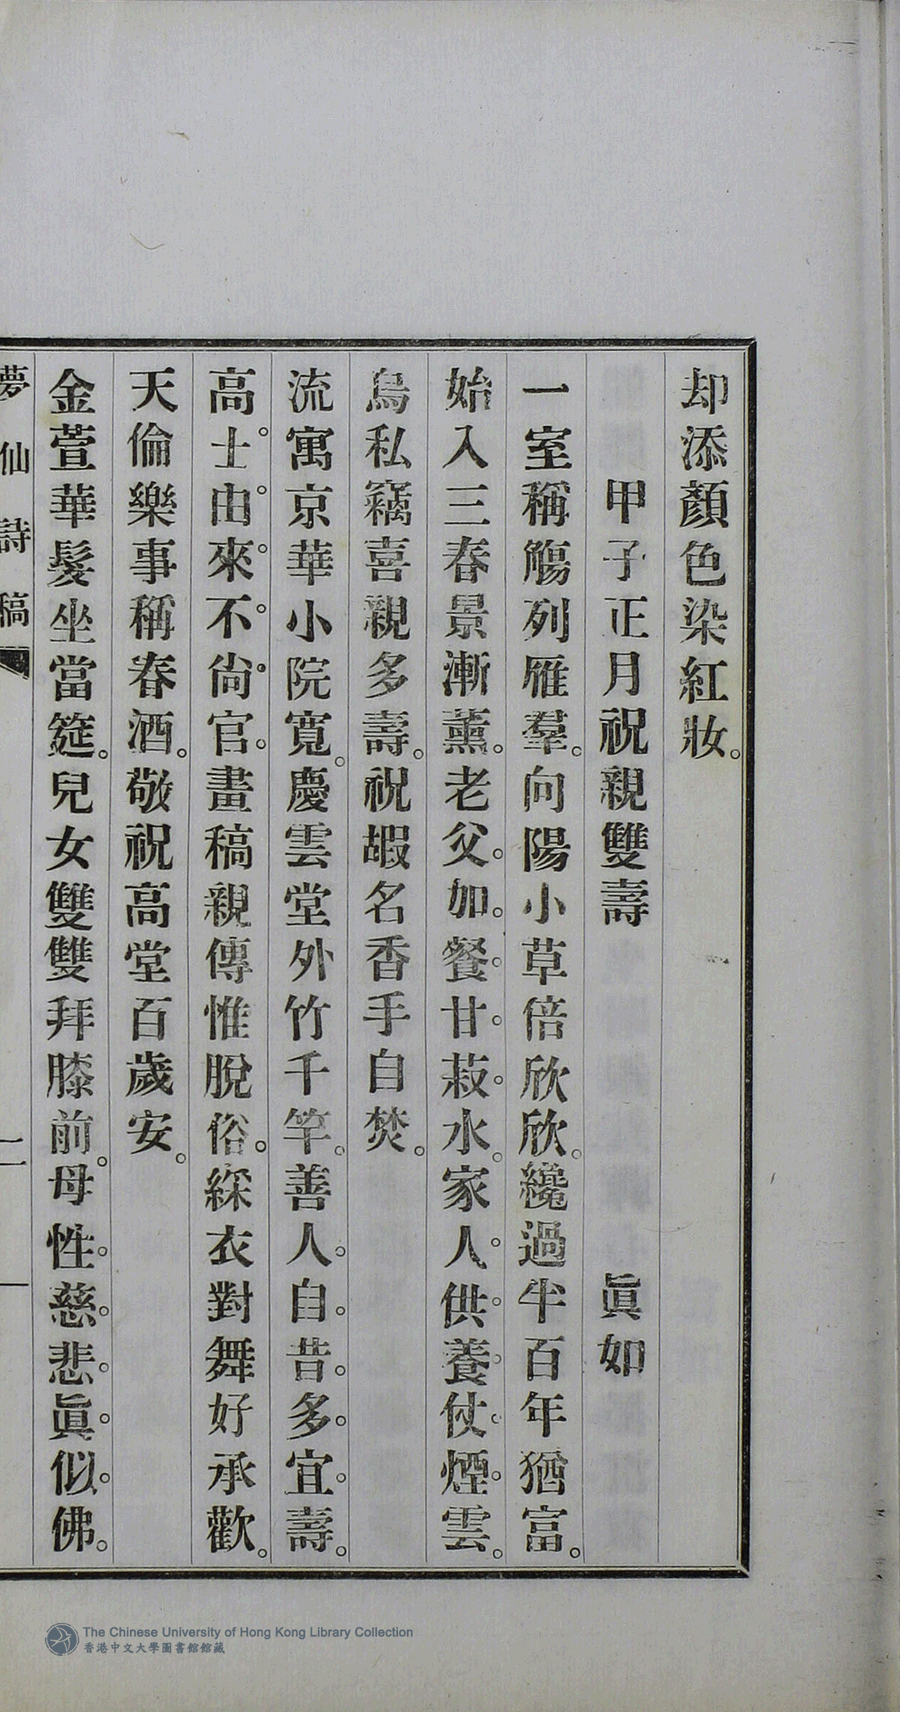 却添顏色染紅妝。
甲子正月祝親雙壽　眞如
一室稱觴列雁羣。向陽小草倍欣欣。纔過半百年猶富。
始入三春景漸薰。老父加餐甘菽水。家人供養仗煙雲。
烏私竊喜親多壽。祝嘏名香手自焚。
流寓京華小院寬。慶雲堂外竹千竿。善人自昔多宜壽。
高士由來不尙官。畫稿親傳惟脫俗。綵衣對舞好承歡。
天倫樂事稱春酒。敬祝高堂百歲安。
金萱華髮坐當筵。兒女雙雙拜膝前。母性慈悲眞似佛。
夢仙詩稿
二
The Chinese University of Hong Kong Library Collection
香港中文大學圖書館館藏